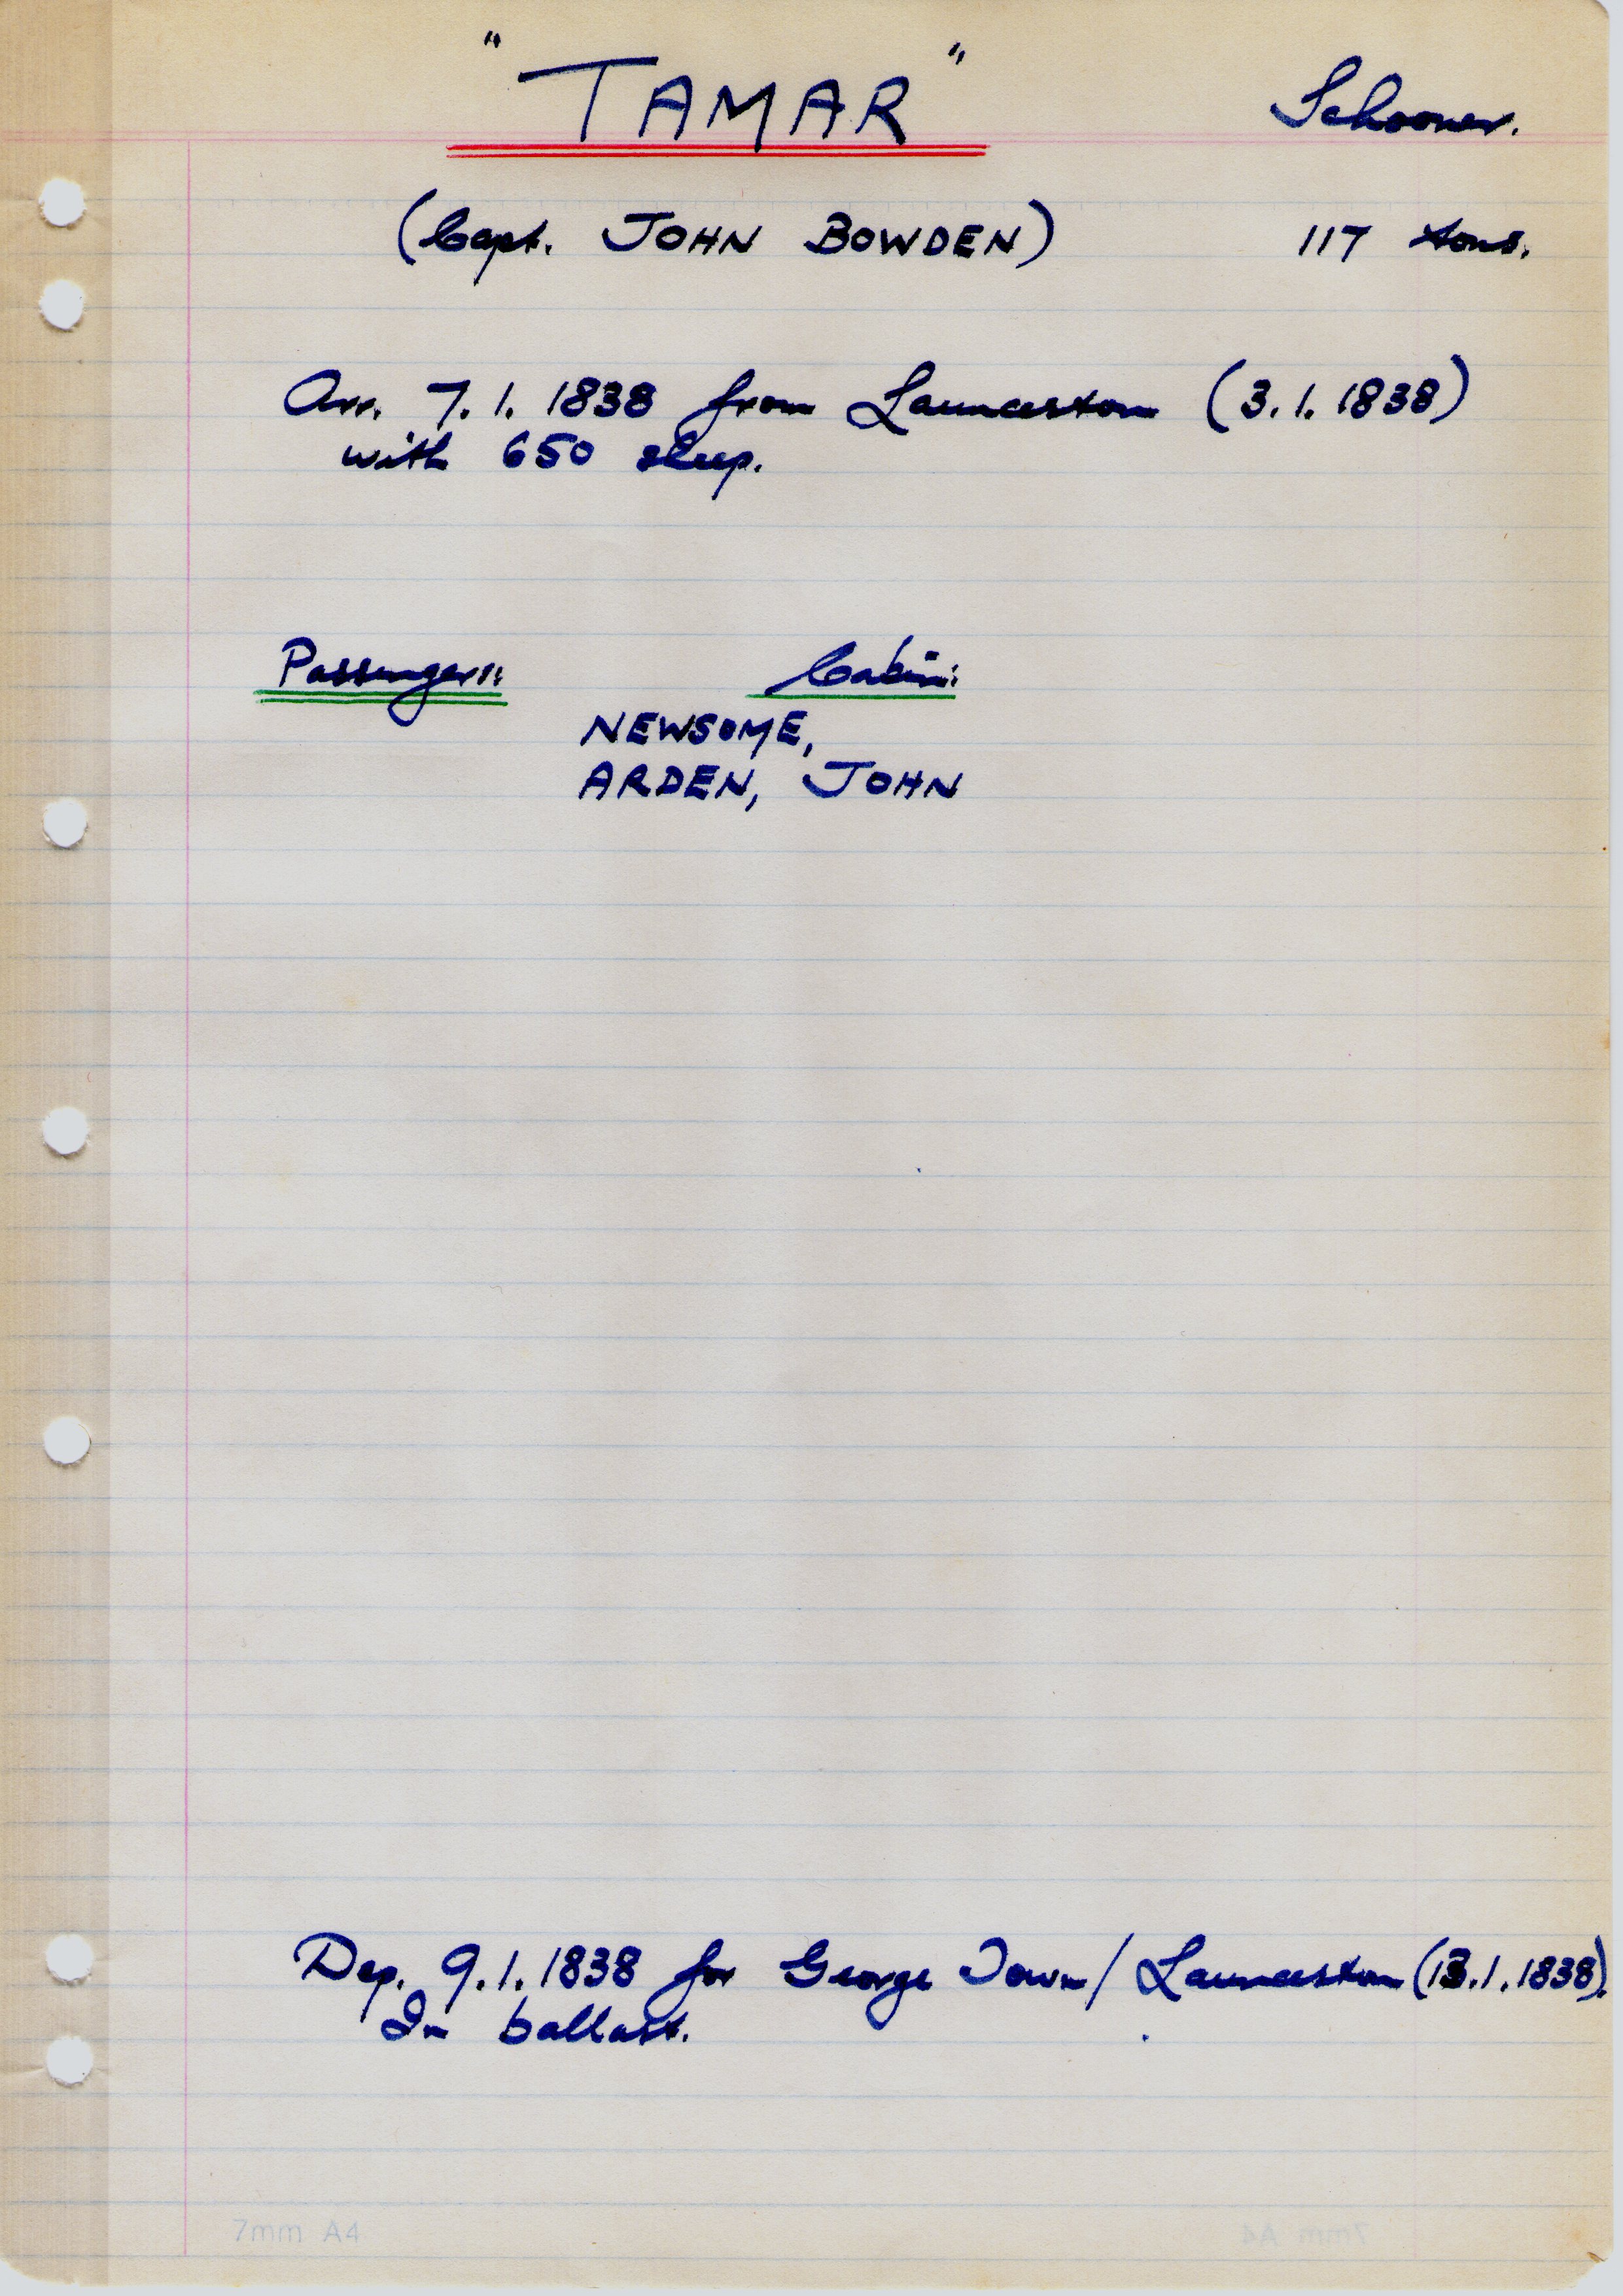 "TAMAR"
Schooner.
(Capt. JOHN BOWDEN)
117 tons.
Arr. 7.1.1838 from Launceston (3.1.1838)
with 650 sheep.
Passengers: Cabin:
NEWSOME,
ARDEN, JOHN
Dep. 9.1.1838 for George Town/Launceston (13.1.1838).
In ballast.
7mm A4